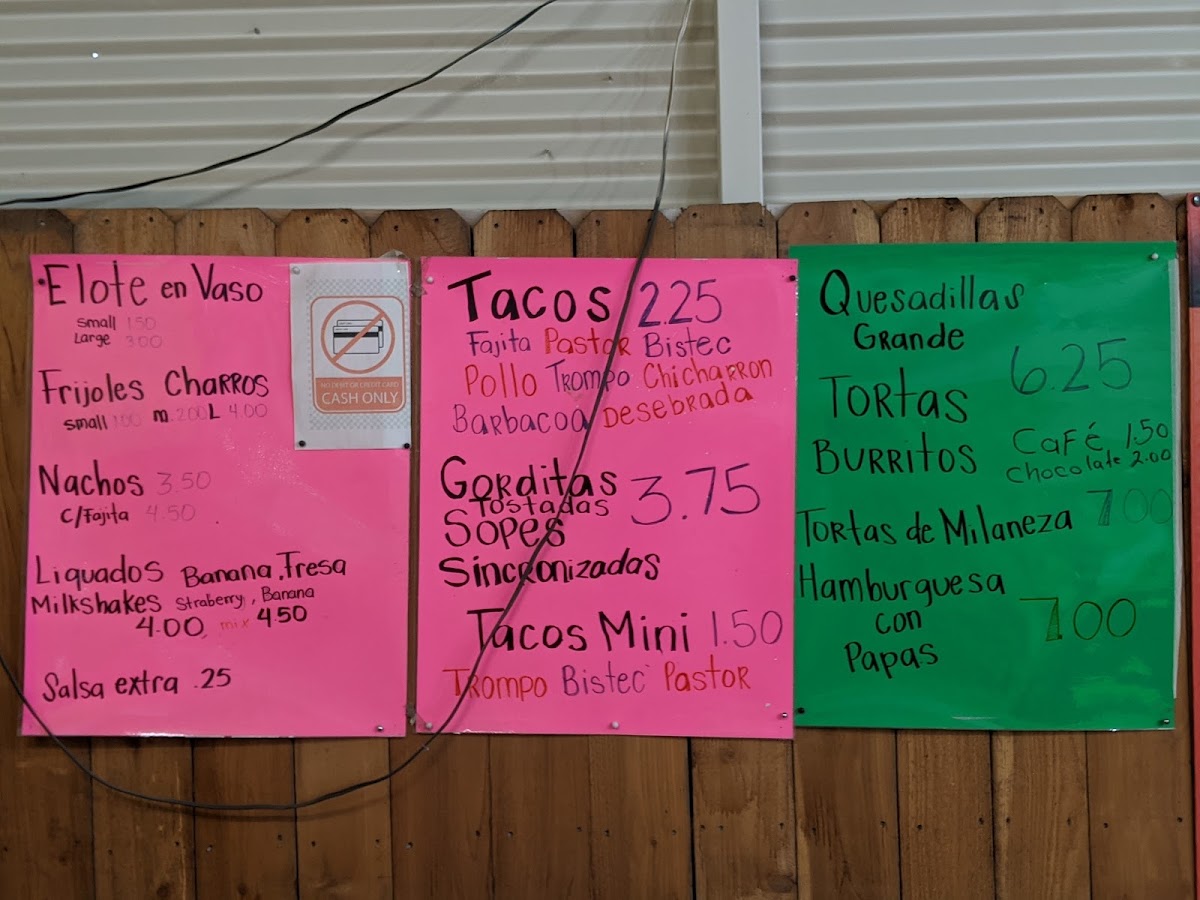 Elote en Vaso
Small 1.50
Large 3.00
Frijoles Charros
Small 1.00 m. 2.00 L 4.00
Nachos 3.50
C/Fajita 4.50
Liquados Banana, Fresa
Milkshakes Straberry, Banana
4.00, mix 4.50
Salsa extra .25
NO DEBIT OR CREDIT CARD
CASH ONLY
Tacos 2.25
Fajita Pastor Bistec
Pollo Trompo Chicharron
Barbacoa Desebrada
Gorditas
Tostadas 3.75
Sopes
Sincronizadas
Tacos Mini 1.50
Trompo Bistec Pastor
Quesadillas
Grande
6.25
Tortas
Burritos
Café 1.50
Chocolate 2.00
Tortas de Milaneza 7.00
Hamburguesa
con 7.00
Papas